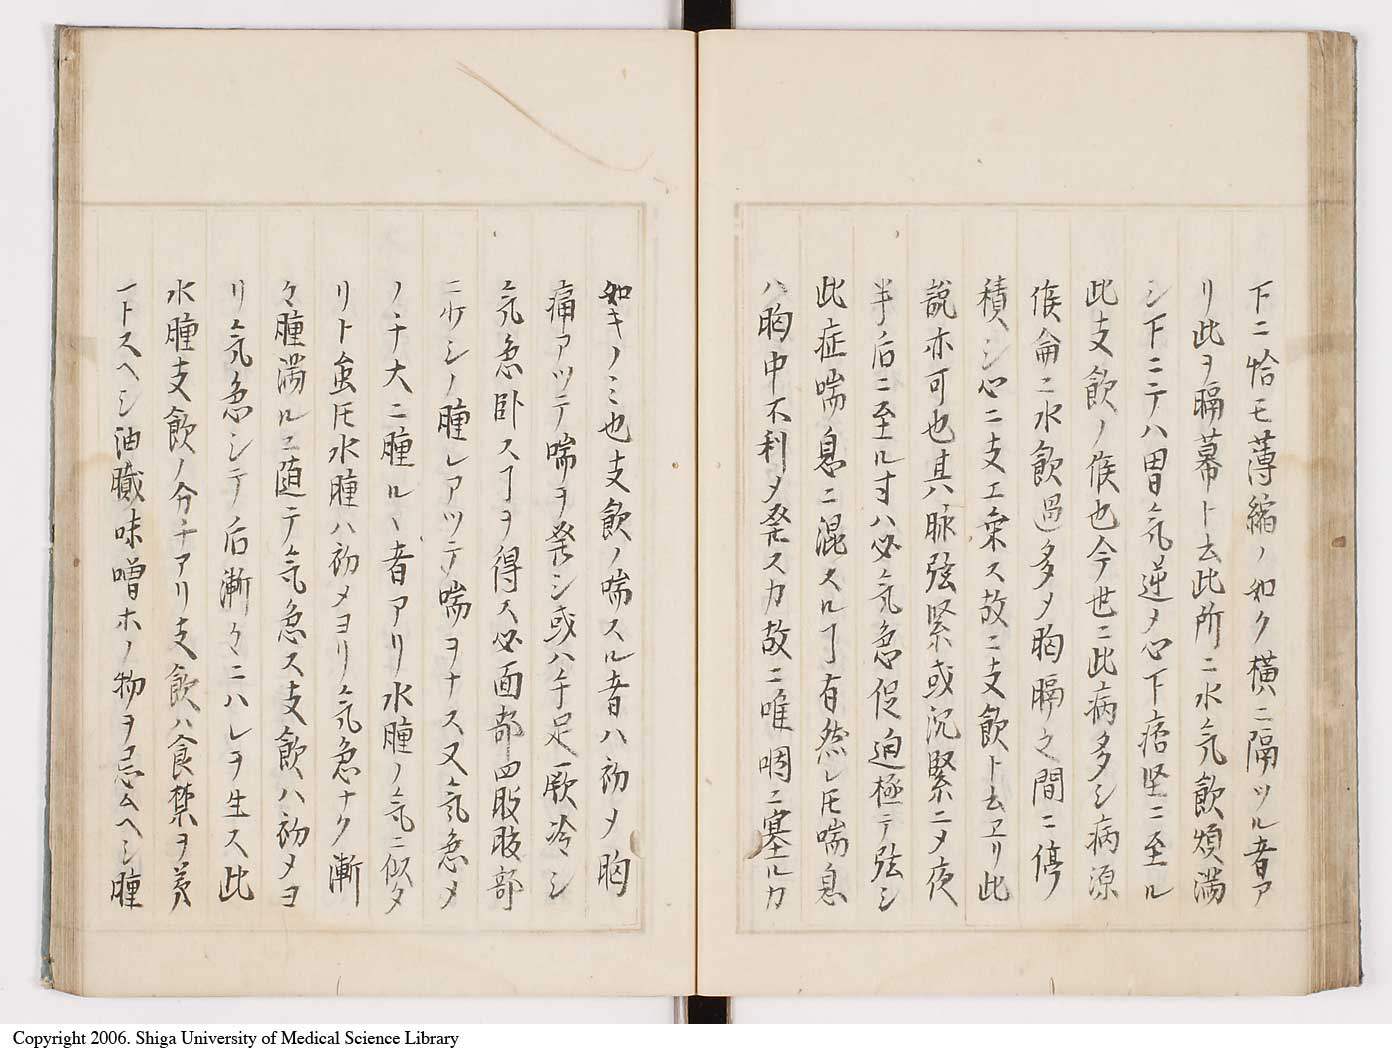 下ニ恰モ薄縮ノ如ク横ニ隔ツル者ア
リ此ヲ膈幕ト云此所ニ水気飲煩満
シ下ニテハ胃気逆メ心下痞堅ニ至ル
此支飲ノ候也今世ニ此病多シ病源
候侖ニ水飲過多メ胸膈之間ニ停
積シ心ニ支エ乗ス故ニ支飲ト云ヱリ此
説亦可也其脉弦緊或沉緊ニメ夜
半后ニ至ル寸ハ必気急促迫極テ弦シ
此症喘息ニ混スルヿ有然レ𪜈喘息
ハ胸中不利メ発スカ故ニ唯咽ニ塞ルカ
如キノミ也支飲ノ喘スル者ハ初メ胸
痛アツテ喘ヲ発シ或ハ手足厥冷シ
気急卧スヿヲ得ス必面部四肢肢部
ニ少シノ腫レアツテ喘ヲナス又気急メ
ノチ大ニ腫ルヽ者アリ水腫ノ気ニ似タ
リト虽𪜈水腫ハ初メヨリ気急ナク漸
々腫満ルニ随テ気急ス支飲ハ初メヨ
リ気急シテ后漸々ニハレヲ生ス此
水腫支飲ノ分チアリ支飲ハ食禁ヲ第
一トスヘシ油膩味噌ホノ物ヲ忌ムヘシ腫
Copyright 2006. Shiga University of Medical Science Library